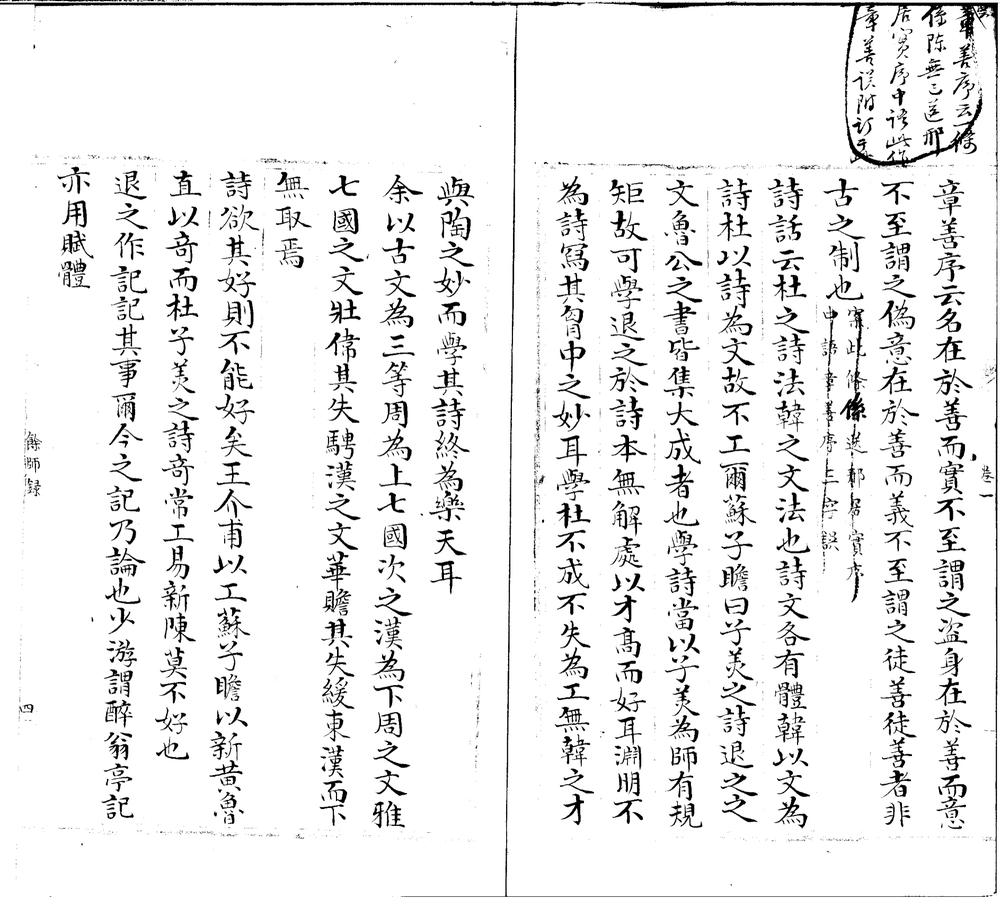 章善序云一條
係陳無己送邢
居實序中語此作
章善誤附訂于此
卷一
章善序云名在於善而實不至謂之盜身在於善而意
不至謂之偽意在於善而義不至謂之徒善徒善者非
古之制也案此條係送邢居實序
中語章善序三字誤
詩話云杜之詩法韓之文法也詩文各有體韓以文為
詩杜以詩為文故不工爾蘇子瞻曰子美之詩退之之
文魯公之書皆集大成者也學詩當以子美為師有規
矩故可學退之於詩本無解處以才高而好耳淵明不
為詩寫其胷中之妙耳學杜不成不失為工無韓之才
與陶之妙而學其詩終為樂天耳
余以古文為三等周為上七國次之漢為下周之文雅
七國之文壯偉其失騁漢之文華贍其失緩東漢而下
無取焉
詩欲其好則不能好矣王介甫以工蘇子瞻以新黃魯
直以竒而杜子美之詩竒常工易新陳莫不好也
退之作記記其事爾今之記乃論也少游謂醉翁亭記
亦用賦體
餘師録
四